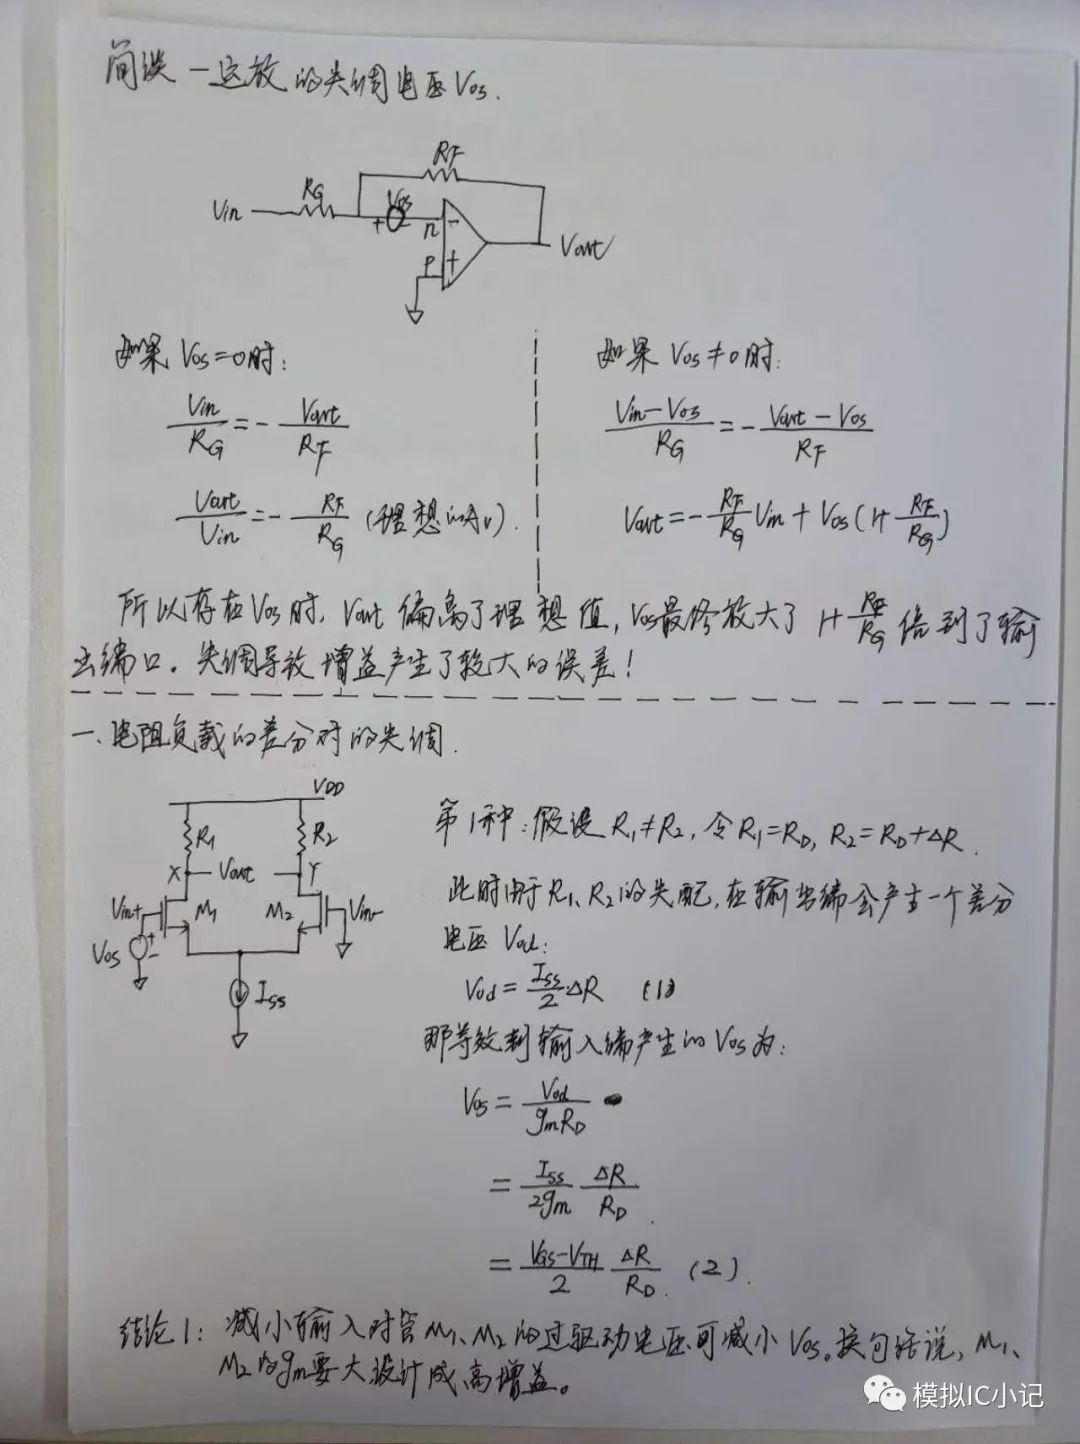 简谈-运放的失调电压Vos.
RF
RG
Vos
Vin
+
n
-
P
+
Vout
如果 Vos=0时:
Vin/RG = - Vout/RF
Vout/Vin = - RF/RG (理想的Av).
如果 Vos≠0时:
(Vin-Vos)/RG = - (Vout-Vos)/RF
Vout = - RF/RG Vin + Vos(1+RF/RG)
所以存在Vos时, Vout 偏离了理想值, Vos最终放大了 1+RF/RG 倍到了输
出端口。失调导致增益产生了较大的误差!
一、电阻负载的差分对的失调.
VDD
R1
R2
X
Vout
Y
Vin+
M1
M2
Vin-
Vos
+
-
ISS
第1种: 假设 R1≠R2, 令R1=RD, R2=RD+ΔR.
此时由于R1、R2的失配, 在输出端会产生一个差分
电压 Vod:
Vod = ISS/2·ΔR (1)
那等效到输入端产生的Vos为:
Vos = Vod/(gmRD)
= ISS/(2gm) ΔR/RD.
= (VGS-VTH)/2 ΔR/RD (2).
结论1: 减小输入对管M1、M2的过驱动电压可减小Vos。换句话说, M1、
M2的gm要大设计成高增益。
模拟IC小记